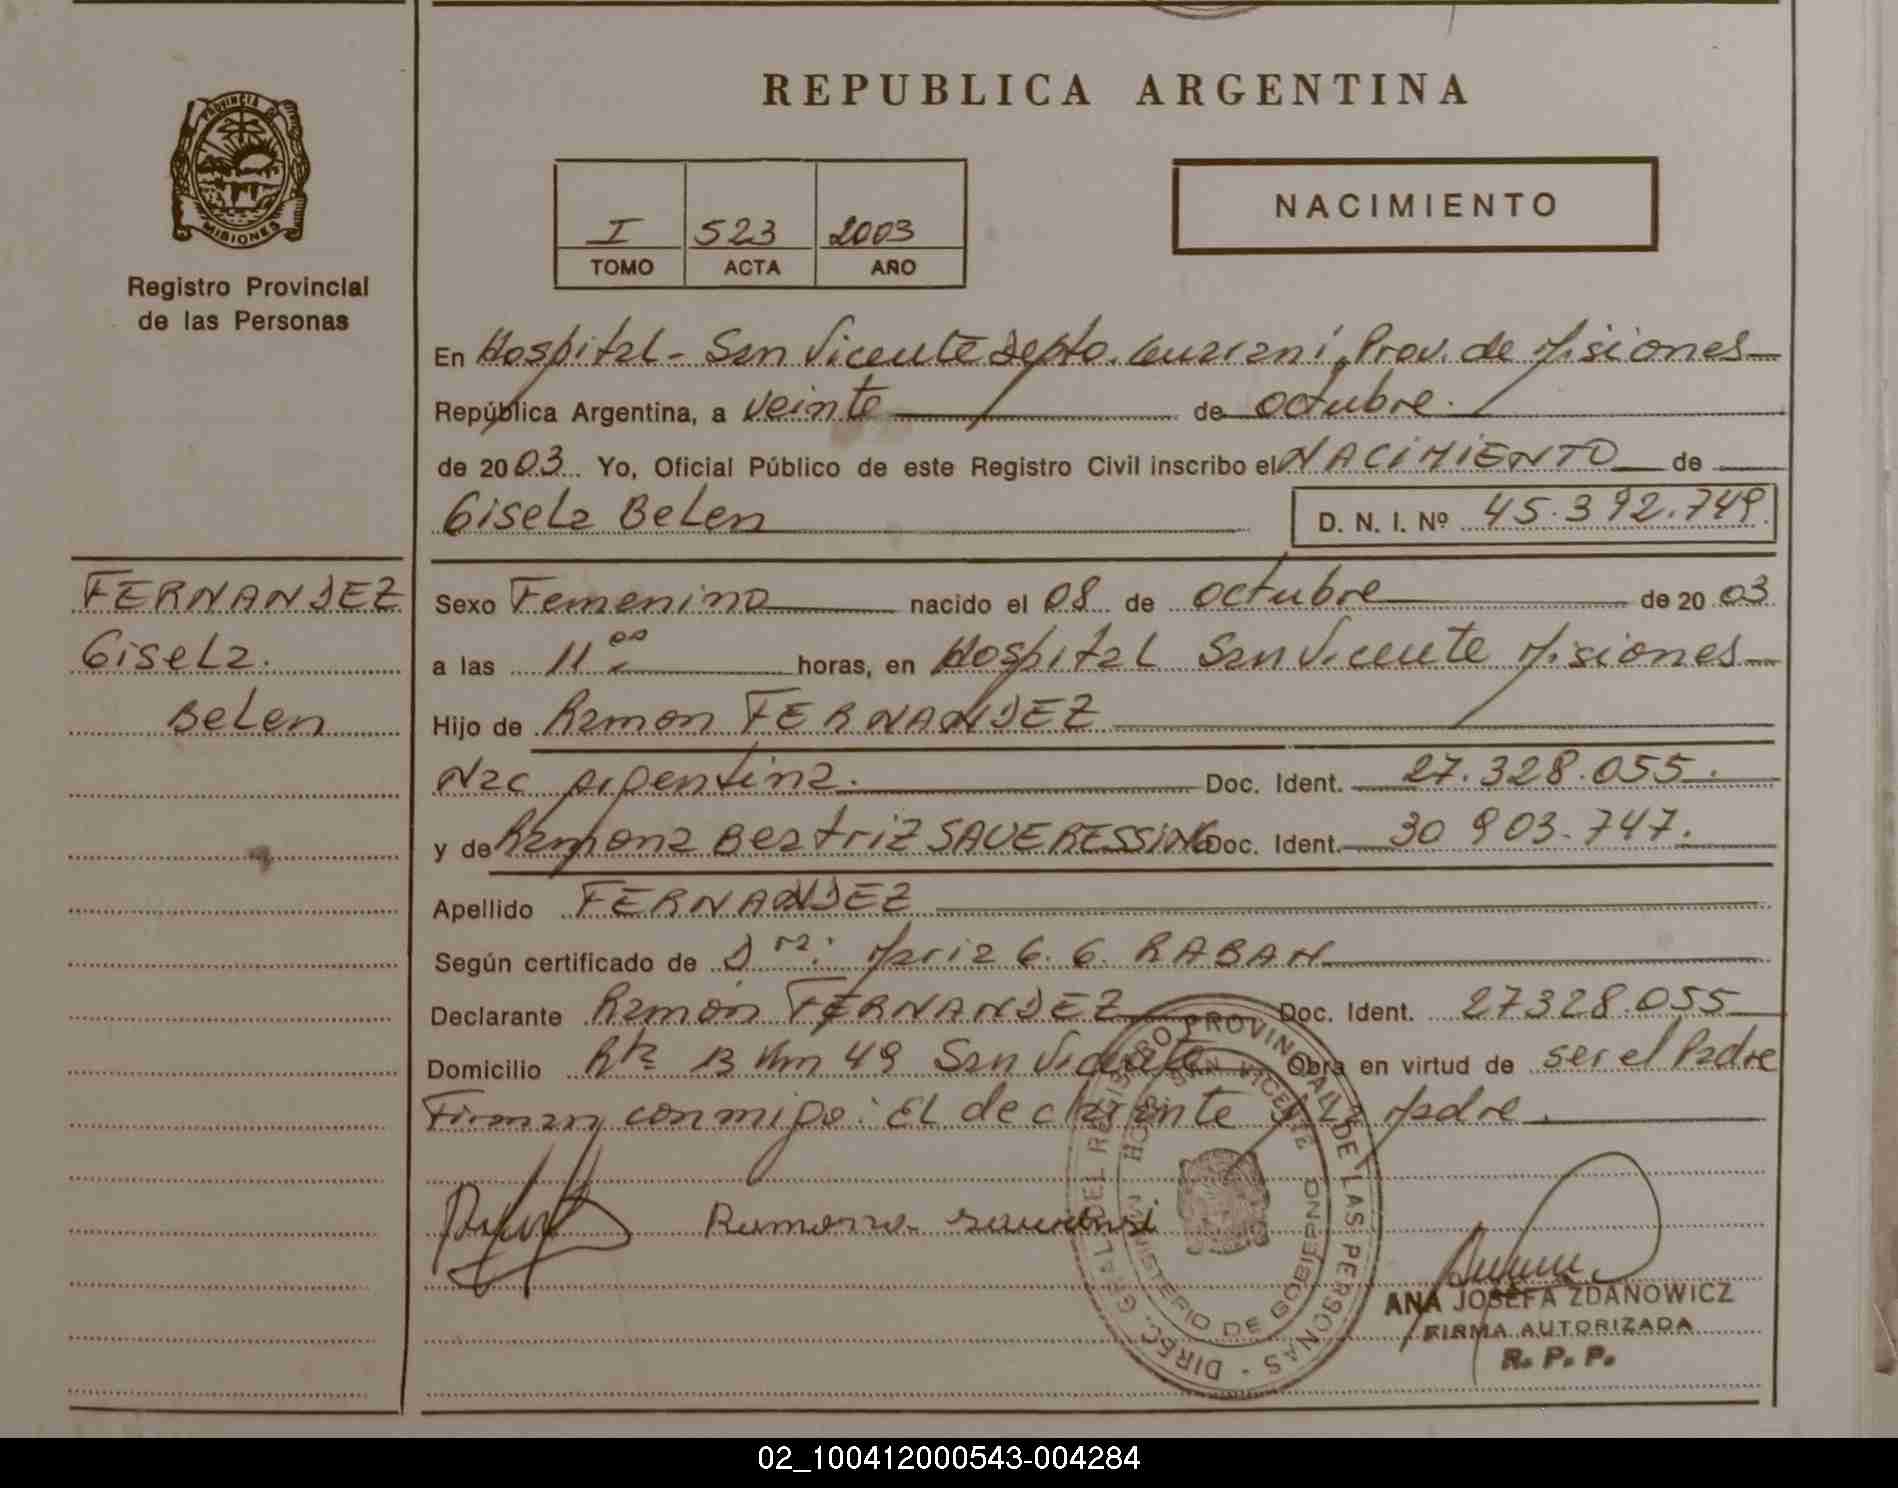 REPUBLICA ARGENTINA
PROVINCIA DE
MISIONES
Registro Provincial
de las Personas
I 523 2003
TOMO ACTA AÑO
NACIMIENTO
En Hospital - San Vicente Depto. Guarani, Prov. de Misiones
República Argentina, a veinte de octubre.
de 2003 Yo, Oficial Público de este Registro Civil inscribo el NACIMIENTO de
Gisela Belen D. N. I. Nº 45.392.749.
FERNANDEZ
Gisela.
Belen
Sexo Femenino nacido el 08 de octubre de 2003
a las 11 00 horas, en Hospital San Vicente Misiones
Hijo de Ramon FERNANDEZ
Nac Argentina. Doc. Ident. 27.328.055.
y de Ramona Beatriz SAUERESSING Doc. Ident. 30 903.747.
Apellido FERNANDEZ
Según certificado de Dra: Maria G. G. RABAN
Declarante Ramón FERNANDEZ Doc. Ident. 27328.055
Domicilio Rta 13 Km 49 San Vicente Obra en virtud de ser el Padre
Firman conmigo: El declarante y la Madre.
Ramona
DIREC. GRAL. DEL REGISTRO PROVINCIAL DE LAS PERSONAS -
HOSP. SAN VICENTE
MINISTERIO DE GOBIERNO
ANA JOSEFA ZDANOWICZ
FIRMA AUTORIZADA
R. P. P.
02_100412000543-004284